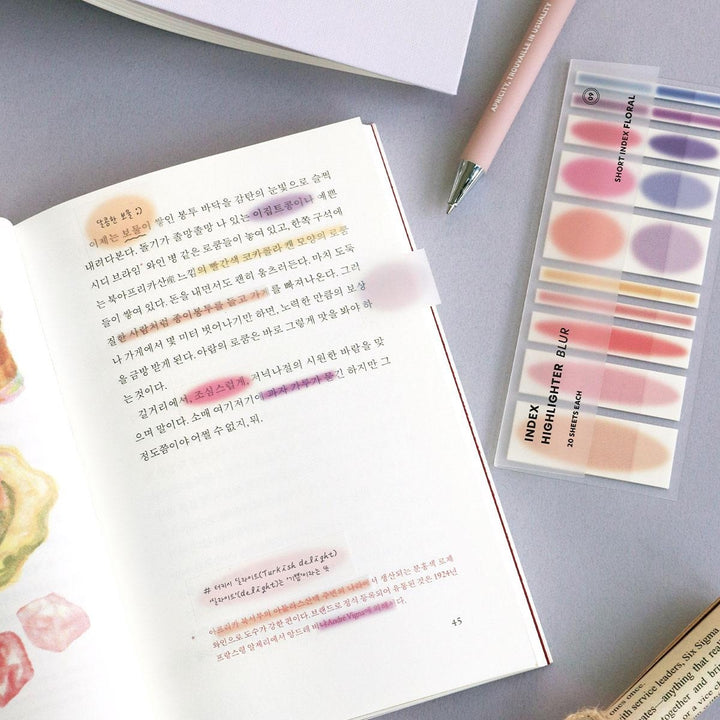 달콤한 보물 :)
이제는 보물이 쌓인 봉투 바닥을 감탄의 눈빛으로 슬쩍
내려다본다. 돌기가 졸망졸망 나 있는 이집트콩이나 예쁜
시디 브라임* 와인 병 같은 로쿰들이 놓여 있고, 한쪽 구석에
는 북아프리카産 느낌의 빨간색 코카콜라 캔 모양의 로쿰
들이 쌓여 있다. 돈을 내면서도 괜히 움츠러든다. 마치 도둑
질한 사람처럼 종이봉투를 들고 가게를 빠져나온다. 그러
나 가게에서 몇 미터 벗어나기만 하면, 노력한 만큼의 보상
을 금방 받게 된다. 아랍의 로쿰은 바로 그렇게 맛을 봐야 하
는 것이다.
길거리에서, 조심스럽게, 저녁나절의 시원한 바람을 맞
으며 말이다. 소매 여기저기에 과자 가루가 묻긴 하지만 그
정도쯤이야 어쩔 수 없지, 뭐.
# 터키시 딜라이트(Turkish delight)
'딜라이트'(delight)는 '기쁨'이라는 뜻
아프리카 북서부의 아틀라스산맥 주변의 나라에서 생산되는 분홍색 로제
와인으로 도수가 강한 편이다. 브랜드로 정식 등록되어 유통된 것은 1924년
프랑스령 알제리에서 앙드레 비뇨André Vigna에 의해서다.
45
APRICITY, TROUVAILLE IN USUALITY
09
SHORT INDEX FLORAL
INDEX
HIGHLIGHTER BLUR
20 SHEETS EACH
ones once.
th service leaders, Six Sigma
anything that real
together and bri